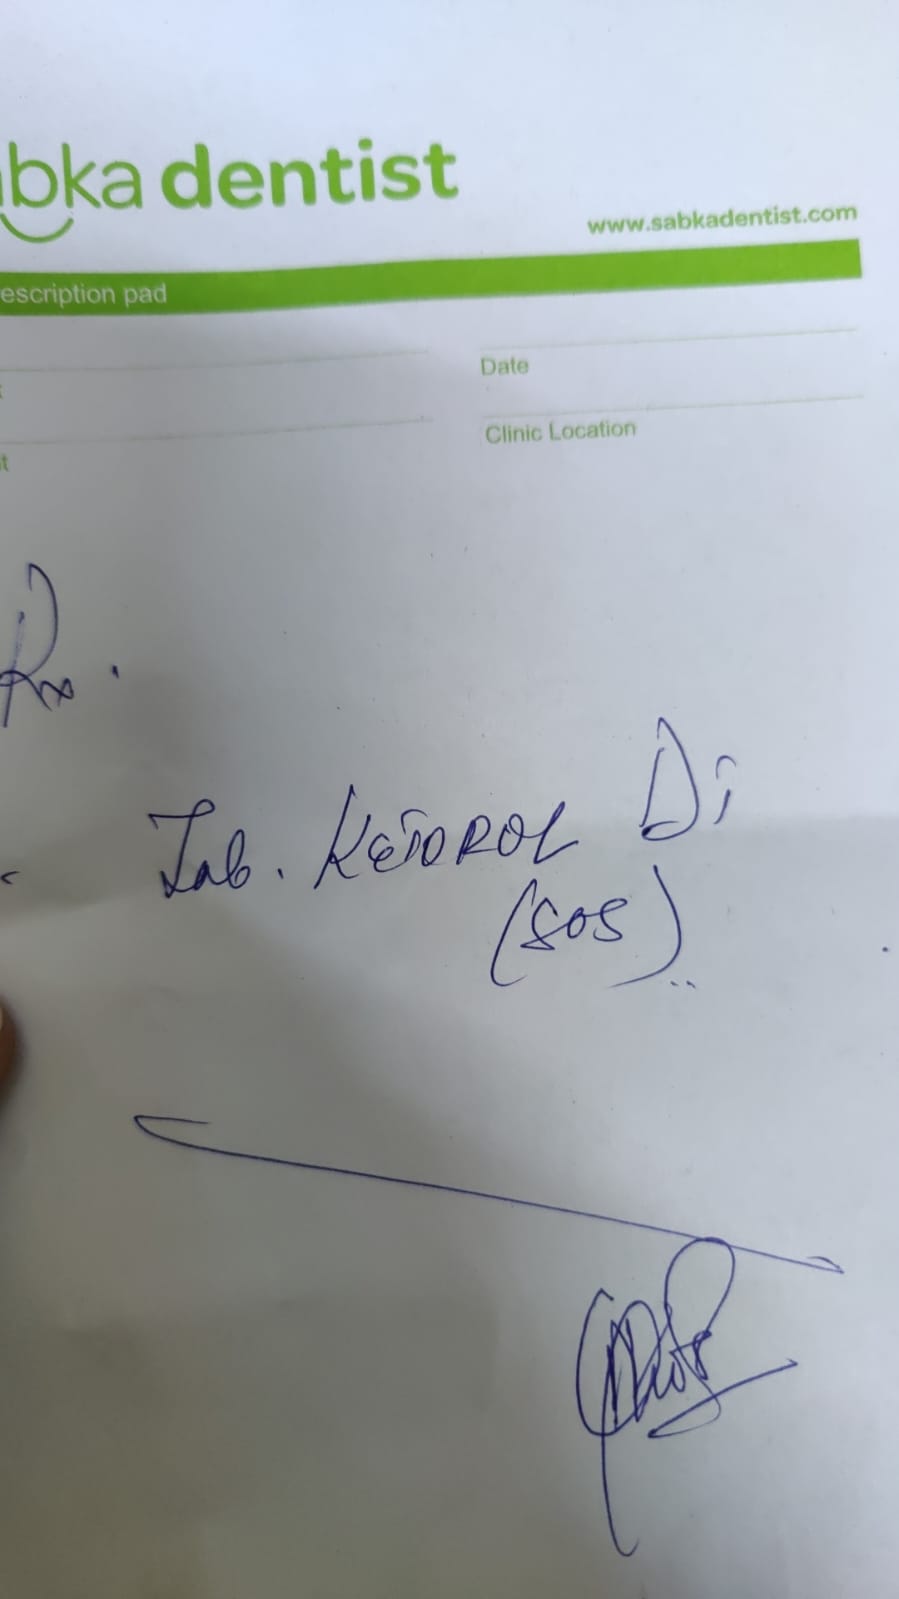 abka dentist
www.sabkadentist.com
escription pad
Date
Clinic Location
t
Rx.
Tab. KETOROL DT
(SOS)